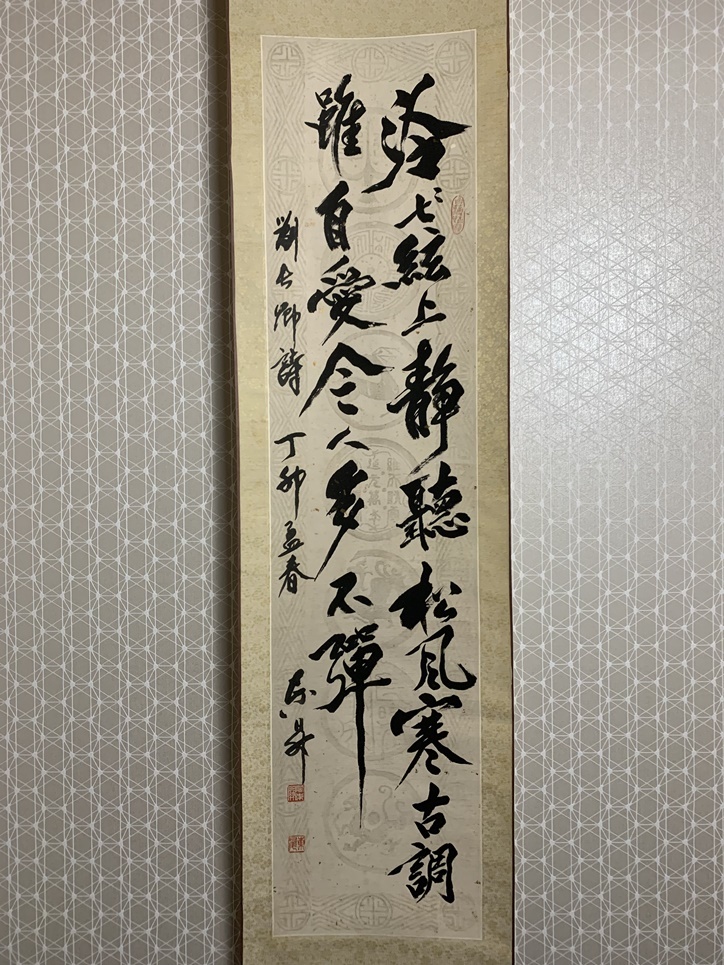 泠〻七絃上靜聽松風寒古調
雖自愛今人多不彈
劉長卿詩 丁卯孟春